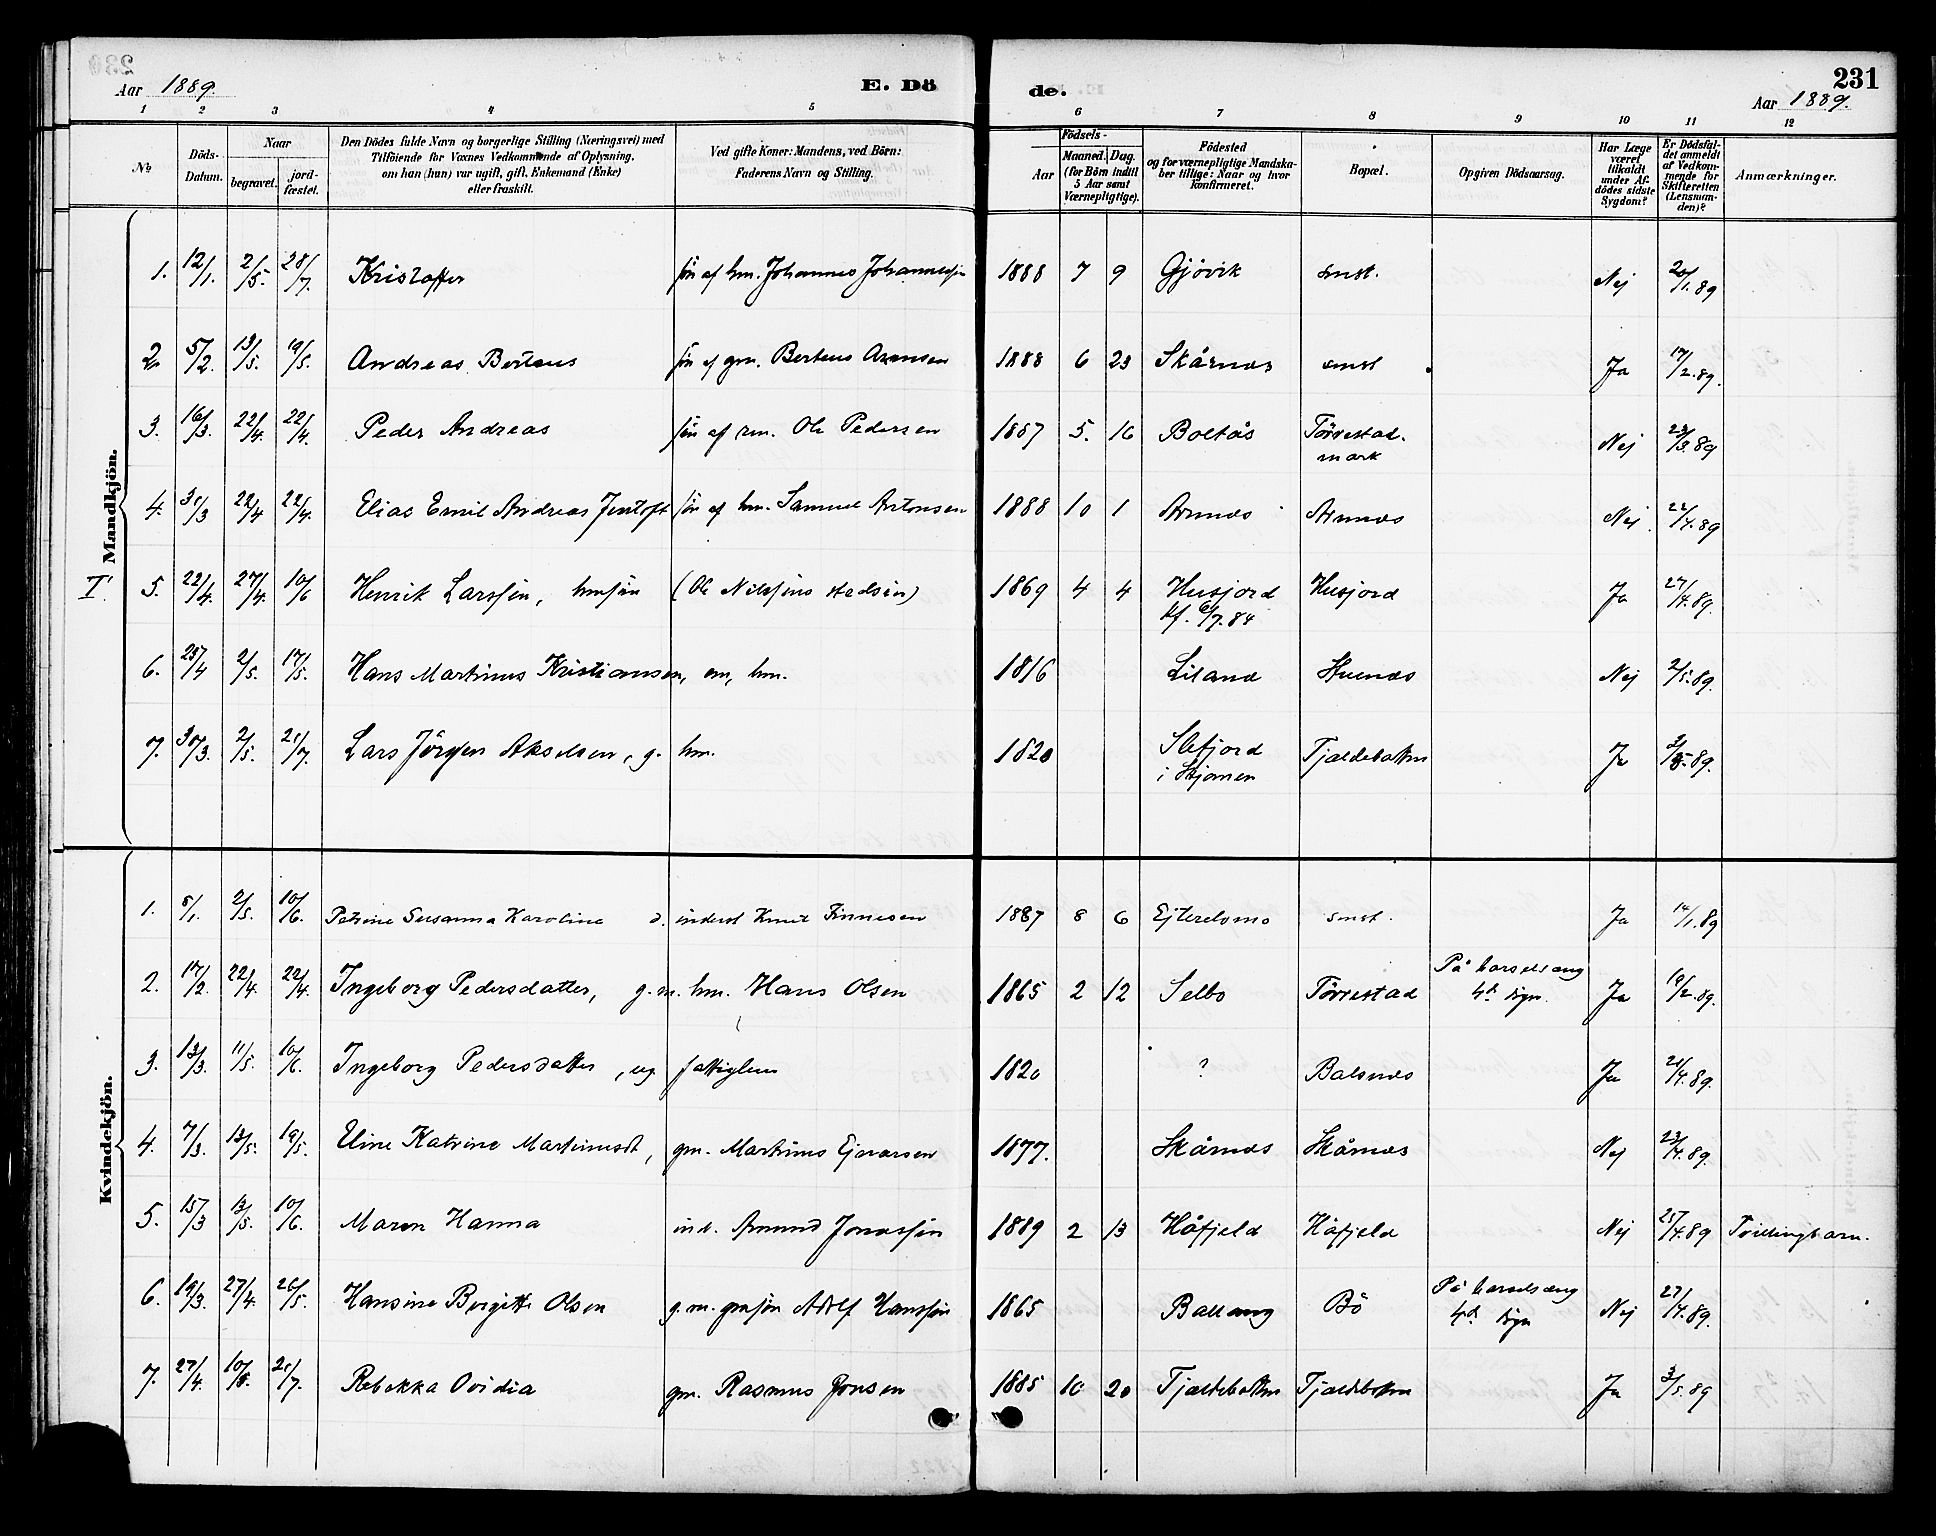 Aar 1889. E. Dö de. 231
Aar 1889.
1 2 3 4 5 6 7 8 9 10 11 12
No.
Döds-Datum.
Naar
begravet.
jord-fæstet.
Den Dödes fulde Navn og borgerlige Stilling (Næringsvei) med
Tilföiende for Voxnes Vedkommende af Oplysning,
om han (hun) var ugift, gift, Enkemand (Enke)
eller fraskilt.
Ved gifte Koner: Mandens, ved Börn:
Faderens Navn og Stilling.
Födsels-
Aar
Maaned. Dag.
(for Börn indtil
5 Aar samt
Værnepligtige).
Födested
og for værnepligtige Mandska-
ber tillige: Naar og hvor
konfirmeret.
Bopæl.
Opgiven Dödsaarsag.
Har Læge
været
tilkaldt
under Af-
dödes sidste
Sygdom?
Er Dödsfal-
det anmeldt
af Vedkom-
mende for
Skifteretten
(Lensman-
den)?
Anmærkninger.
Mandkjön.
1. 12/1. 2/5. 28/7. Kristoffer sön af hm. Johannes Johannessen 1888 7 9 Gjövik smst. Nej 20/1.89
2. 5/2. 13/5. 19/5. Andreas Berteus sön af gm. Berteus Arensen 1888 6 23 Skårnes smst Ja 17/2.89.
3. 16/3. 22/4. 22/4. Peder Andreas sön af rm. Ole Pedersen 1887 5. 16 Boltås Törrestad- Nej 23/3.89
mark
4. 31/3 22/4 22/4. Elias Emil Andreas Jentoft sön af hm. Samuel Antonsen 1888 10 1 Arnnes Arnnes Nej. 22/4.89
I. 5. 22/4. 27/4. 10/6 Henrik Larssen, hmsön (Ole Nilssens stedsön) 1869 4 4 Husjord Husjord Ja 27/4.89.
kf. 6/7.84
6. 25/4 2/5. 17/5. Hans Martinus Kristiansen, em, hm. 1816 Liland Stuenes Nej 2/5.89.
7. 30/3. 2/5. 21/7 Lars Jörgen Akselsen, g. hm. 1820 Slefjord Tjeldebotten Ja 2/5.89.
i Skjomen
Kvindekjön.
1. 5/1. 2/5. 10/6. Petrine Susanna Karoline d. inderst Knut Finnesen 1887 8 6 Ejterelvmo smst. Ja 14/1.89
2. 17/2. 22/4. 22/4. Ingeborg Pedersdatter, g.m. hm. Hans Olsen 1865 2 12 Selbo Törrestad På barselseng Ja 19/2.89.
4d. dögn.
3. 13/3. 11/5. 10/6. Ingeborg Pedersdatter, ug fattiglem 1820 ? Balsnes Ja 21/4.89.
4. 7/3. 13/5. 19/5. Eline Katrine Martinusdt, gm. Martinus Ejnarsen 1877. Skårnes Skårnes Nej 23/4.89.
5. 15/3 13/5. 10/6. Maren Hanna ind. Amund Jonassen 1889 2 13 Håfjeld Håfjeld Nej 25/4.89 Tvillingbarn.
6. 19/3. 27/4. 26/5. Hansine Bergitte Olsen g.m. gmsön Adolf Hanssen 1865 Ballang Bö På barselseng Nej 27/4.89.
4d. dögn
7. 27/4. 10/5. 21/7. Rebekka Ovidia gm. Rasmus Jonsen 1885 10 20 Tjeldebotten Tjeldebotten Ja 3/5.89